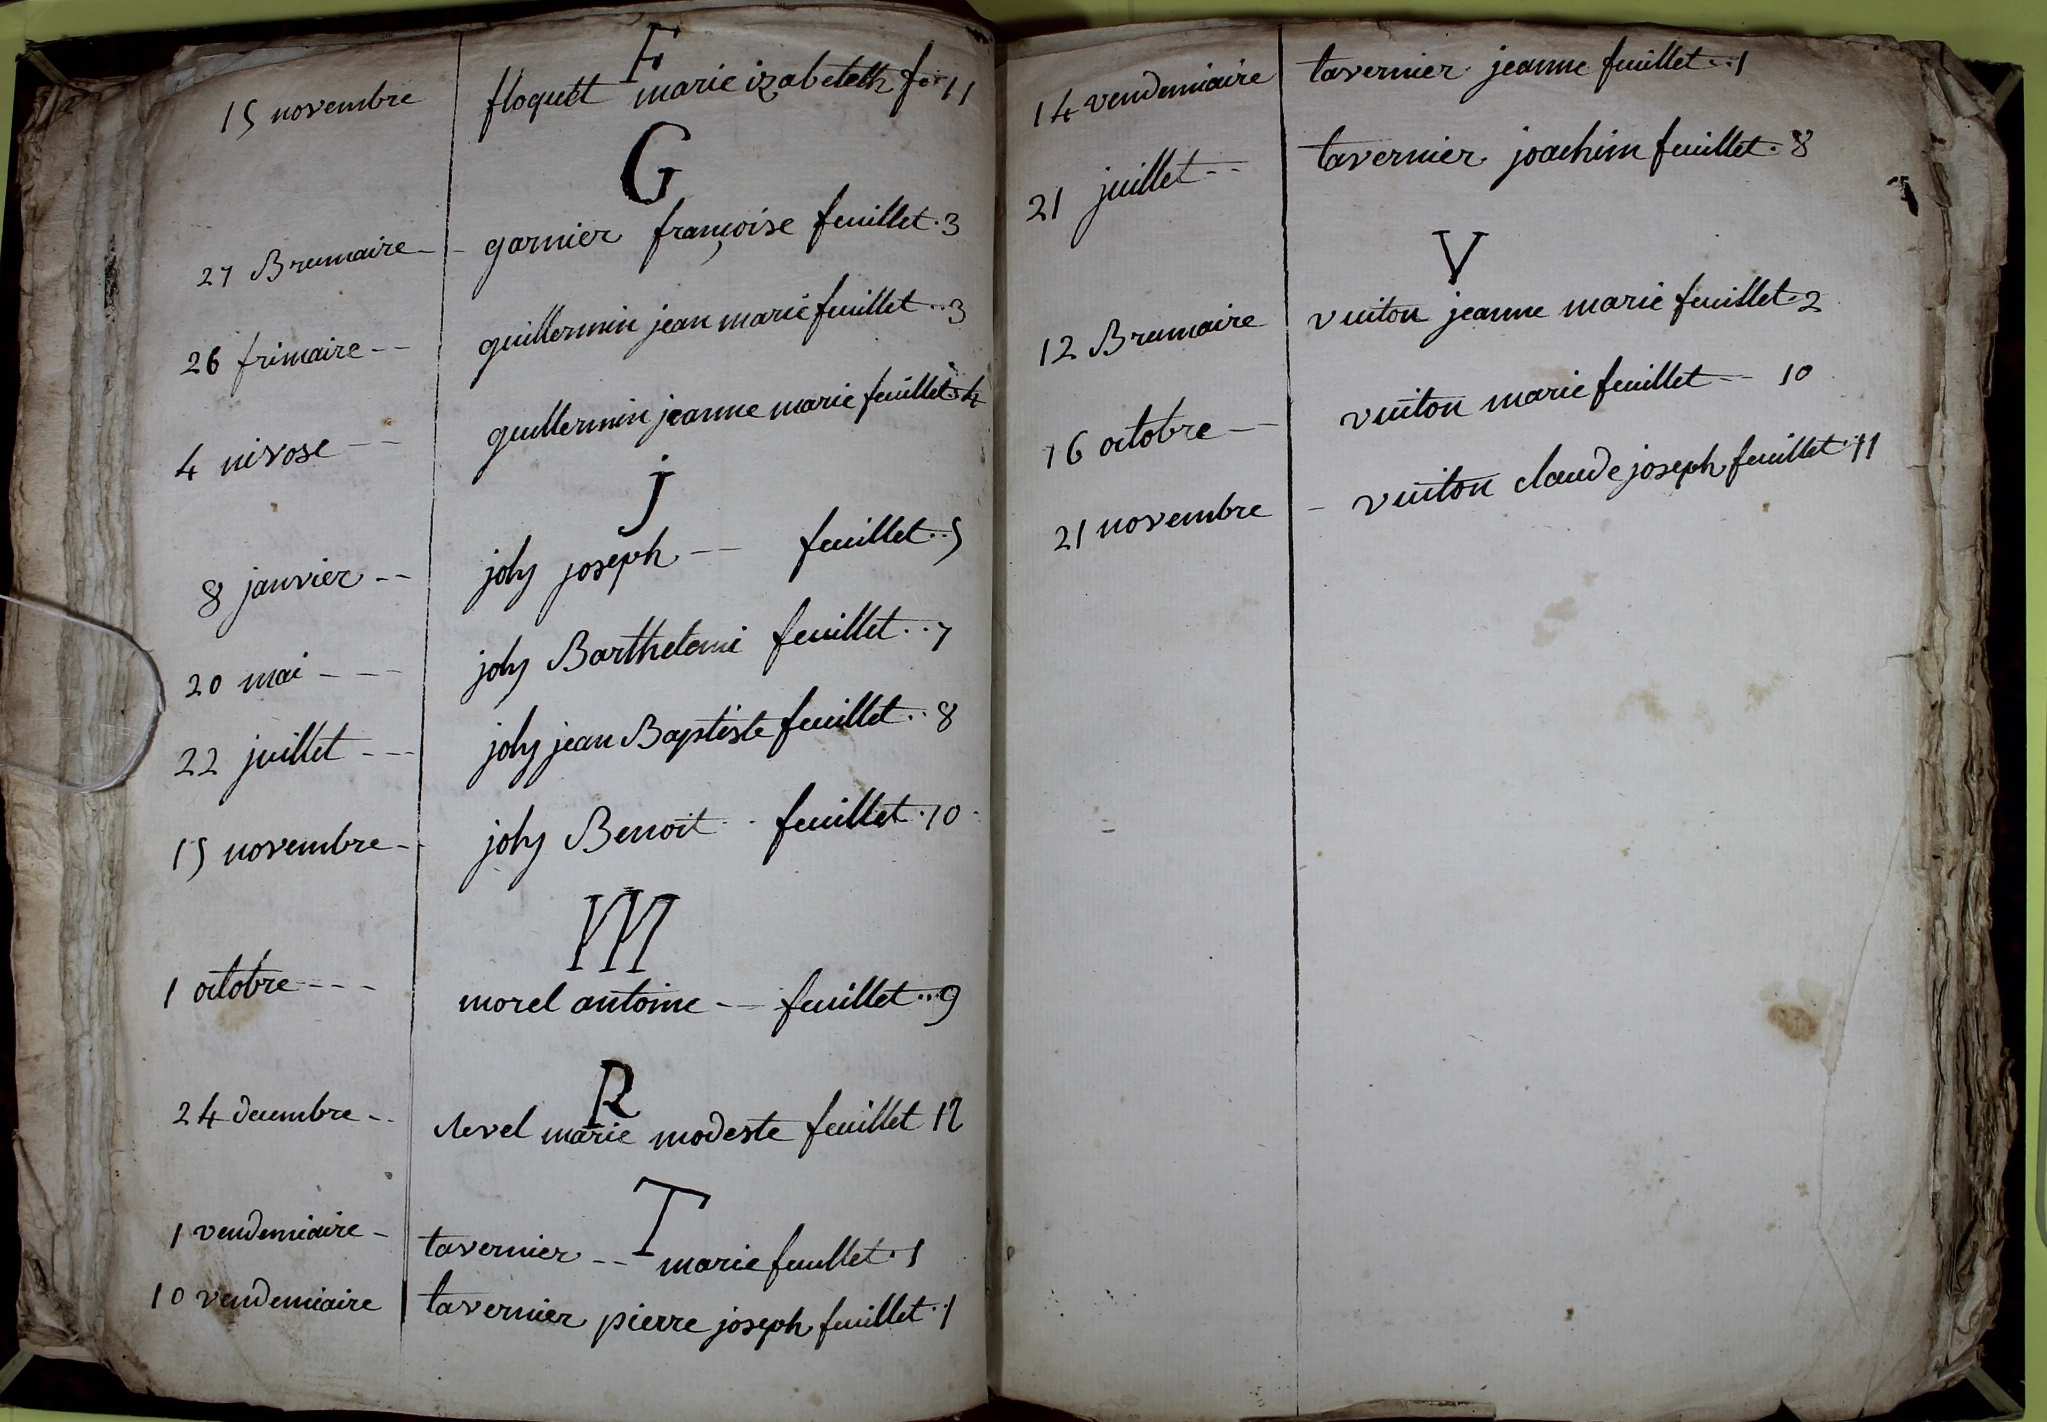 F
15 novembre floquet marie izabeteth feu 11
G
27 Brumaire - - garnier françoise feuillet . 3
26 frimaire - - guillermin jean marie feuillet . . 3
4 nivose - - guillermin jeanne marie feuillet . 4
j
8 janvier - - joly joseph - - feuillet . . 5
20 mai - - - joly Barthelemi feuillet . . 7
22 juillet - - - joly jean Baptiste feuillet . . 8
15 novembre - - joly Benoit . . feuillet . 10
M
1 octobre - - - morel antoine - - feuillet . . . 9
R
24 decembre - - revel marie modeste feuillet 12
T
1 vendemiaire - tavernier - - marie feuillet . 1
10 vendemiaire tavernier pierre joseph feuillet . . 1
14 vendemiaire tavernier jeanne feuillet . . 1
21 juillet - - tavernier joachim feuillet . 8
V
12 Brumaire vuiton jeanne marie feuillet . 2
16 octobre - - vuiton marie feuillet - - 10
21 novembre - vuiton claude joseph feuillet . 11